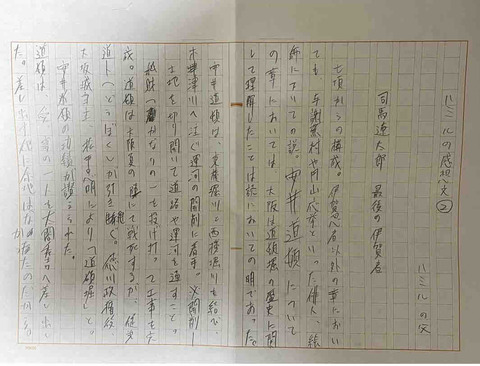 ハミルの感想文②
ハミルの父
司馬遼太郎 最後の伊賀者
七項からの構成。伊賀忍者以外の章におい
ても 与謝蕪村や円山応挙といった偉人、絵
師においての説。安井道頓について
の一章においては、大阪は道頓堀の歴史に関
して理解したことは読においての明であった。
安井道頓は、東横堀川と西横堀川を結び、
木津津川へ注ぐ運河の開削に着手。
土地を切り開いて道路や運河を通すこと。
私財 かなりの を投げ打って工事を
成。道頓は大阪夏の陣にて戦死するが、従兄
道ト（どうぼく）が引き継ぐ。徳川政権後
大坂城主 松平忠明により「道頓堀」と。
安井成後の道頓が讃えられた。
道頓は の一人を太閤秀吉へ差し出し
た。差し出す他に余地はなかったのだから